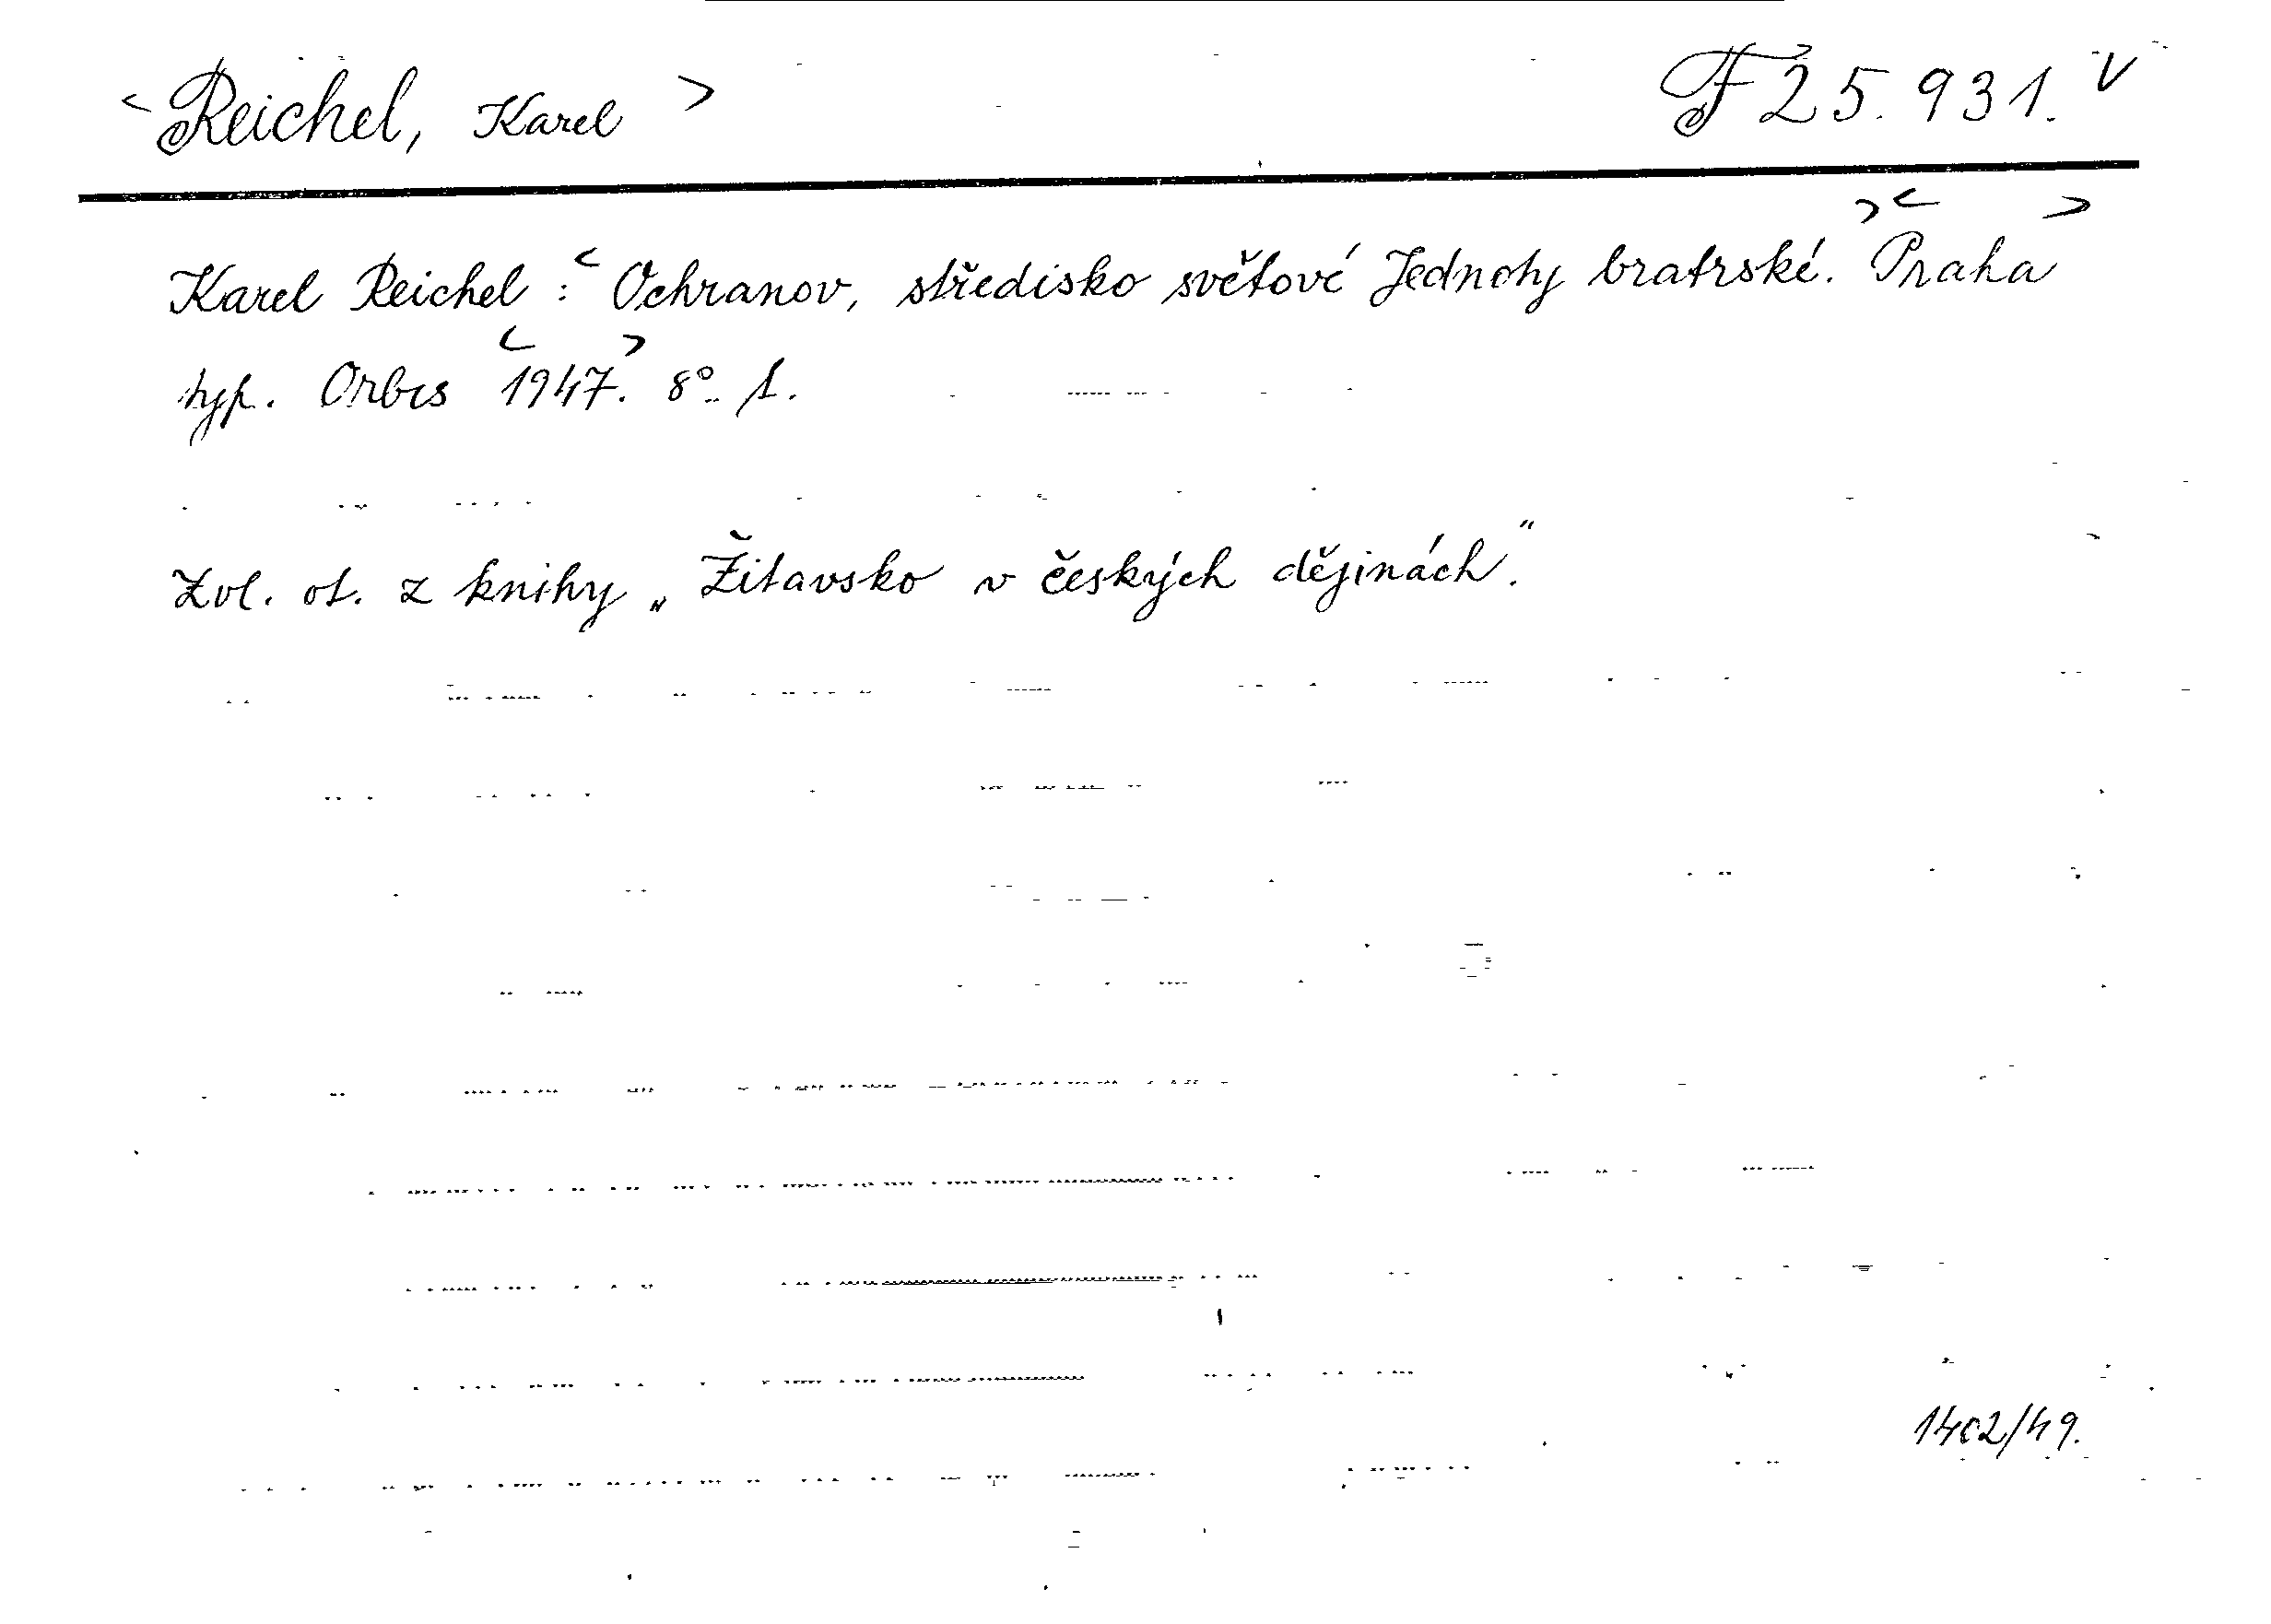 < Reichel, Karel >
F 25.931. V
Karel Reichel : < Ochranov, středisko světové Jednoty bratrské. > < Praha >
typ. Orbis < 1947. > 8°. 1.
Zvl. ot. z knihy „Žitavsko v českých dějinách."
1402/49.